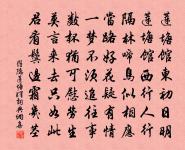 蓮塘館東初日明
蓮塘館西行人行
隔林啼鳥似相應
當路好花疑有情
一夢不須追往事
數杯猶可慰勞生
莫言來去只如此
君看鬢邊霜幾莖